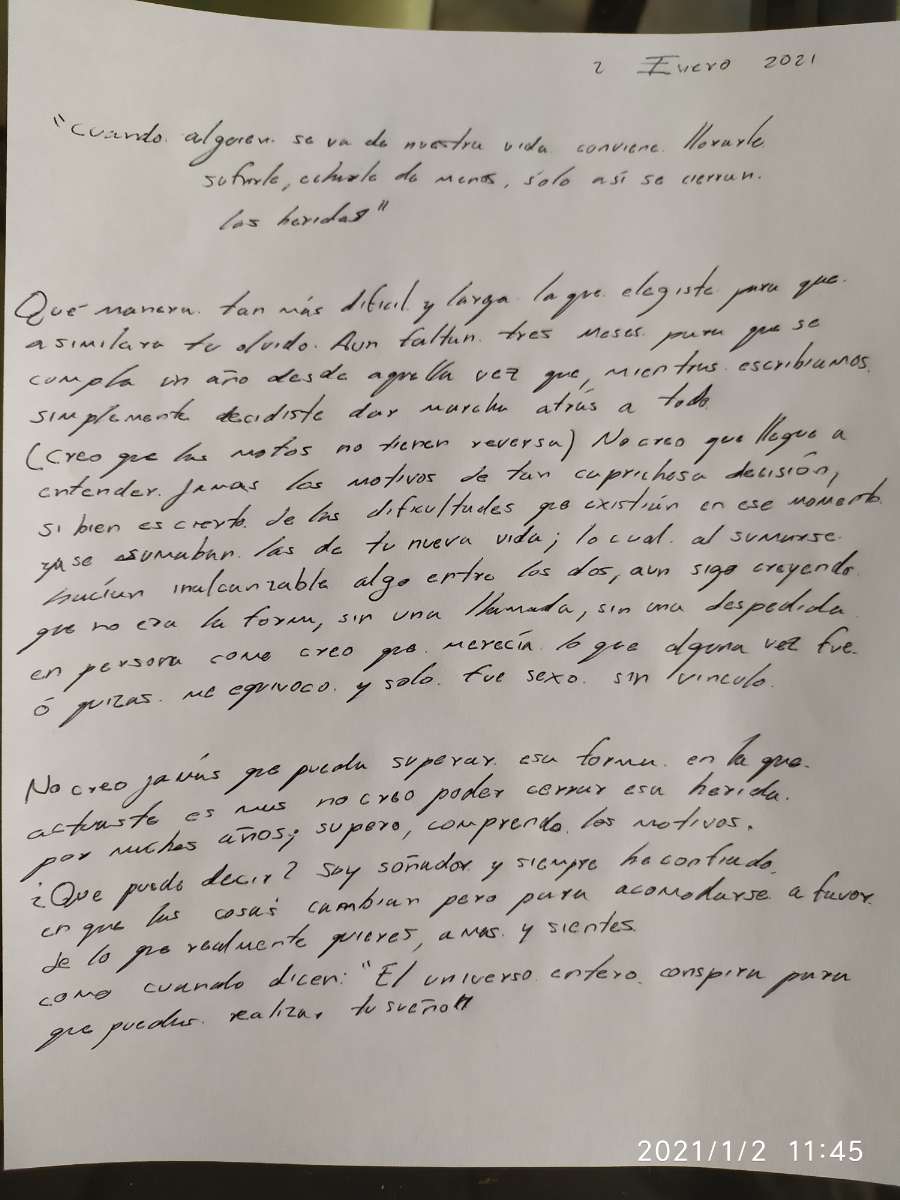 2 Enero 2021
"Cuando alguien se va de nuestra vida conviene llorarle
sufrirle, echarle de menos, solo así se cierran
las heridas"
Qué manera tan más difícil y larga la que elegiste para que
asimilara tu olvido. Aun faltan tres meses para que se
cumpla un año desde aquella vez que, mientras escribíamos
simplemente decidiste dar marcha atrás a todo
(creo que las motos no tienen reversa) No creo que llegue a
entender jamas los motivos de tan caprichosa decisión,
si bien es cierto de las dificultades que existían en ese momento
ya se sumaban las de tu nueva vida; lo cual al sumarse
hacían inalcanzable algo entre los dos, aun sigo creyendo
que no era la forma, sin una llamada, sin una despedida
en persona como creo que merecía lo que alguna vez fue
ó quizas me equivoco y solo fue sexo sin vinculo.
No creo jamás que pueda superar esa forma en la que
actuaste es mas no creo poder cerrar esa herida
por muchos años; supero, comprendo los motivos.
¿Que puedo decir? Soy soñador y siempre he confiado
en que las cosas cambian pero para acomodarse a favor
de lo que realmente quieres, amas y sientes.
como cuando dicen: "El universo entero conspira para
que puedas realizar tu sueño"
2021/1/2 11:45